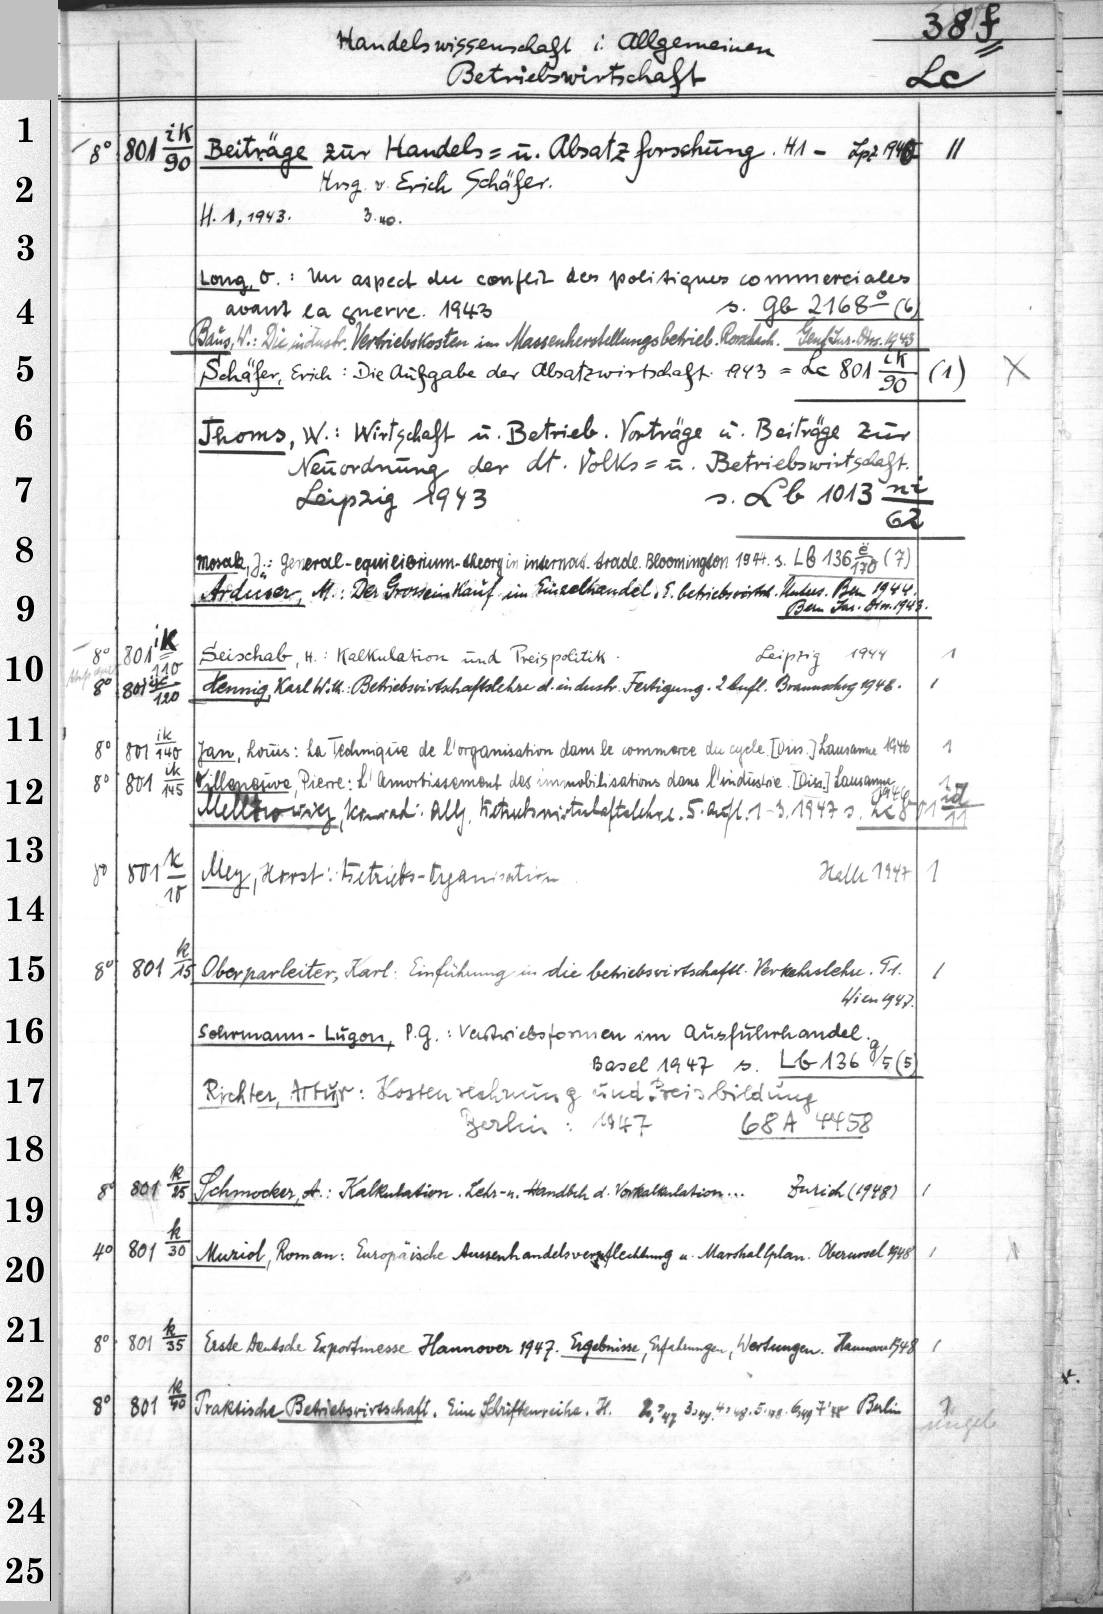 38 f
Handelswissenschaft i. Allgemeinen
Betriebswirtschaft
Lc
1
8° 801 ik/90 Beiträge zur Handels= u. Absatzforschung. H1 - Lpz 194 II
2
Hrsg. v. Erich Schäfer.
H. 1, 1943. 3.
3
Long, O.: Un aspect du conflit des politiques commerciales
4
avant la guerre. 1943 s. Gb 2168 e (6)
Baus, W.: Die industr. Vertriebskosten im Massenherstellungsbetrieb. Rorschach. Genf Jur. Diss. 1943
5
Schäfer, Erich: Die Aufgabe der Absatzwirtschaft. 1943 = Lc 801 ik/90 (1) X
6
Thoms, W.: Wirtschaft u. Betrieb. Vorträge u. Beiträge zur
Neuordnung der dt. Volks= u. Betriebswirtschaft.
7
Leipzig 1943 s. Lb 1013 ni/62
8
Mosak, J.: General-equilibrium-theory in internat. trade. Bloomington 1944. s. Lb 136 e/170 (7)
Ardüser, M.: Der Grosseinkauf im Einzelhandel. E. betriebswirtsch. Unters. Bern 1944.
9
Bern Jur. Diss. 1943.
8° 801 ik/110 Seischab, H.: Kalkulation und Preispolitik. Leipzig 1944 1
10
8° 801 ik/120 Hennig, Karl Wilh.: Betriebswirtschaftslehre d. industr. Fertigung. 2 Aufl. Braunschwg 1946. 1
11
8° 801 ik/140 Jan, Louis: La Technique de l'organisation dans le commerce du cycle. [Diss.] Lausanne 1946 1
12
8° 801 ik/145 Villeneuve, Pierre: L'Amortissement des immobilisations dans l'industrie. [Diss.] Lausanne 1946 1
Mellerowicz, Konrad: Allg. Betriebswirtschaftslehre. 5. Aufl. 1-3. 1947 s. Lc 801 id/11
13
8° 801 k/10 Mey, Horst: Betriebs-Organisation Halle 1947 1
14
15
8° 801 k/15 Oberparleiter, Karl: Einführung in die betriebswirtschaftl. Verkehrslehre. T1. 1
Wien 1947.
16
Sohrmann-Lugon, P.G.: Vertriebsformen im Ausfuhrhandel.
Basel 1947 s. Lb 136 g/5 (5)
17
Richter, Artur: Kostenrechnung und Preisbildung
Berlin: 1947 68 A 4458
18
8° 801 k/25 Schmocker, A.: Kalkulation. Lehr- u. Handbch d. Vorkalkulation... Zürich (1948) 1
19
4° 801 k/30 Muziol, Roman: Europäische Aussenhandelsverflechtung u. Marshallplan. Oberursel 1948 1
20
21
8° 801 k/35 Erste Deutsche Exportmesse Hannover 1947. Ergebnisse, Erfahrungen, Wertungen. Hannover 1948 1
22
8° 801 k/40 Praktische Betriebswirtschaft. Eine Schriftenreihe. H. Berlin
23
24
25